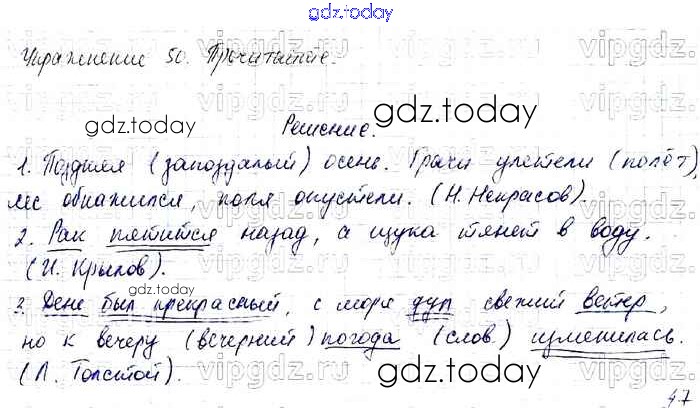 gdz.today
Упражнение 50. Прочитайте.
Решение.
1. Поздняя (запоздалый) осень. Грачи улетели (полёт),
лес обнажился, поля опустели. (Н. Некрасов).
2. Рак пятится назад, а щука тянет в воду.
(И. Крылов).
3. День был прекрасный, с моря дул свежий ветер,
но к вечеру (вечерний) погода (слов.) изменилась.
(Л. Толстой).
47